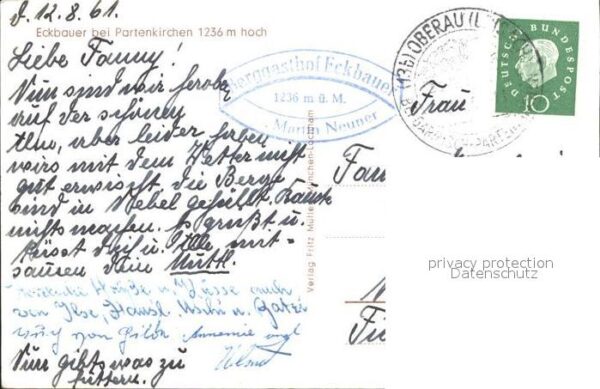 d. 12.8.61.
Eckbauer bei Partenkirchen 1236 m hoch
Liebe Fanny!
Nun sind wir heroben
auf der schönen
Alm, aber leider haben
wirs mit dem Wetter nicht
gut erwischt, die Berge
sind in Nebel gehüllt. Kannst
nichts machen. Es grüßt u.
küsst Dich u. Alle mit-
sausen dein Muttl.
Grüße u. Küsse auch
von Ilse, Hansl, Uschi u.
von Gilde Annemie und
Helmut
Nun gibts was zu
futtern.
Berggasthof Eckbauer
1236 m ü. M.
Martin Neuner
Verlag Fritz Müller München-Lochham
(13b) OBERAU
DEUTSCHE BUNDESPOST
10
Frau
Fan
privacy protection
Datenschutz